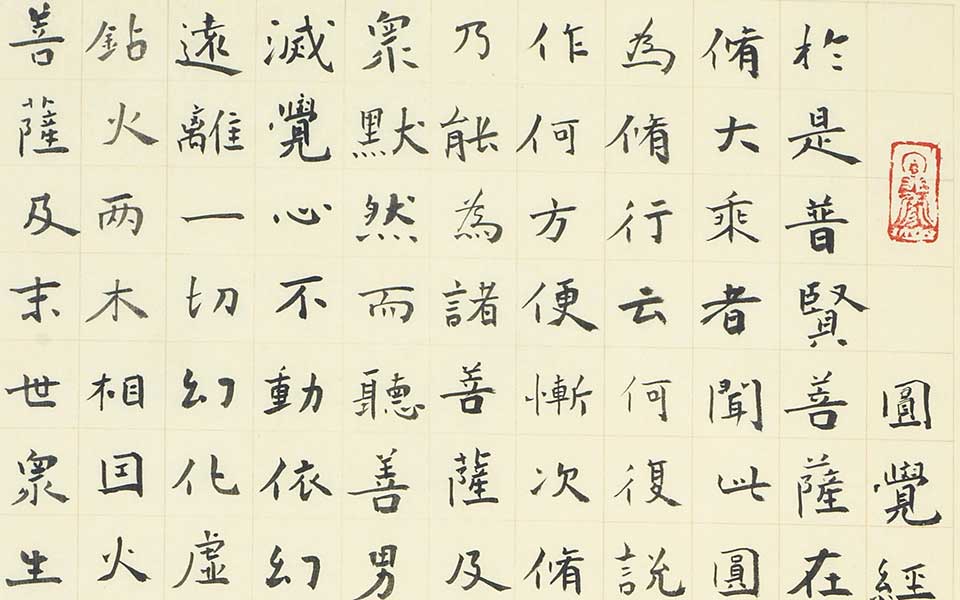 圓覺經
於是普賢菩薩在
脩大乘者聞此圓
為脩行云何復説
作何方便慚次脩
乃能為諸菩薩及
衆默然而聽善男
滅覺心不動依幻
遠離一切幻化虛
鉆火两木相因火
菩薩及末世衆生